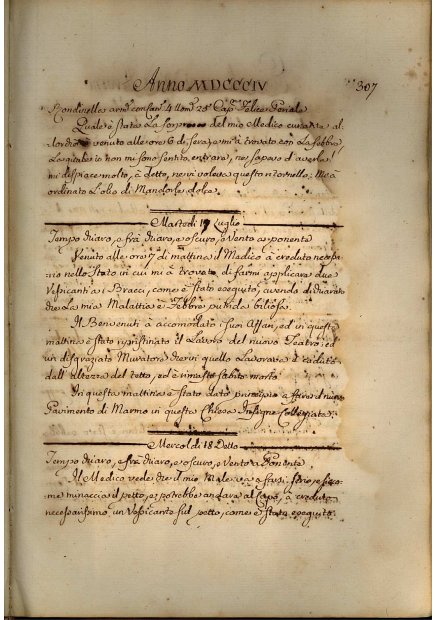 Anno MDCCCIV 307
Rondinella arm: con Can: 4 Uom: 25 Cap: Felice
Quale è stata La sorpresa del mio Medico curante al-
venuto alle ore 6 di sera, e mi à trovato con La febbre,
La quale io non mi sono sentito entrare, ne sapevo d'averla
mi dispiace molto, à detto, ne vi voleva questo ritornello. Mi à
ordinato L'olio di Mandorle dolce.
Martedì 17 Luglio
Tempo chiaro, e frà chiaro, e oscuro, e Vento a ponente
Venuto alle ore 7 di mattina il Medico à creduto necessa-
rio nello Stato in cui mi à trovato di farmi applicare due
Vessicanti a i Bracci, come è stato eseguito, avendo dichiarato
che La mia Malattia è Febbre putrida biliosa.
Il Benvenuti à accomodato i suoi Affari, ed in questa
mattina è stato ripristinato il Lavoro del nuovo Teatro; ed
un disgraziato Muratore che in quello Lavorava è caduto
dall'Altezza del tetto, ed è rimasto subito morto
In questa mattina è stato dato principio a fare il nuovo
Pavimento di Marmo in questa Chiesa Insigne Collegiata.
Mercoldì 18 Detto
Tempo chiaro, e frà chiaro, e oscuro, e Vento a Ponente
Il Medico vede che il mio Male và a farsi serio, e sicco-
me minaccia il petto, e potrebbe andare al Capo, à creduto
necessarissimo un Vessicante sul petto, come è stato eseguito.